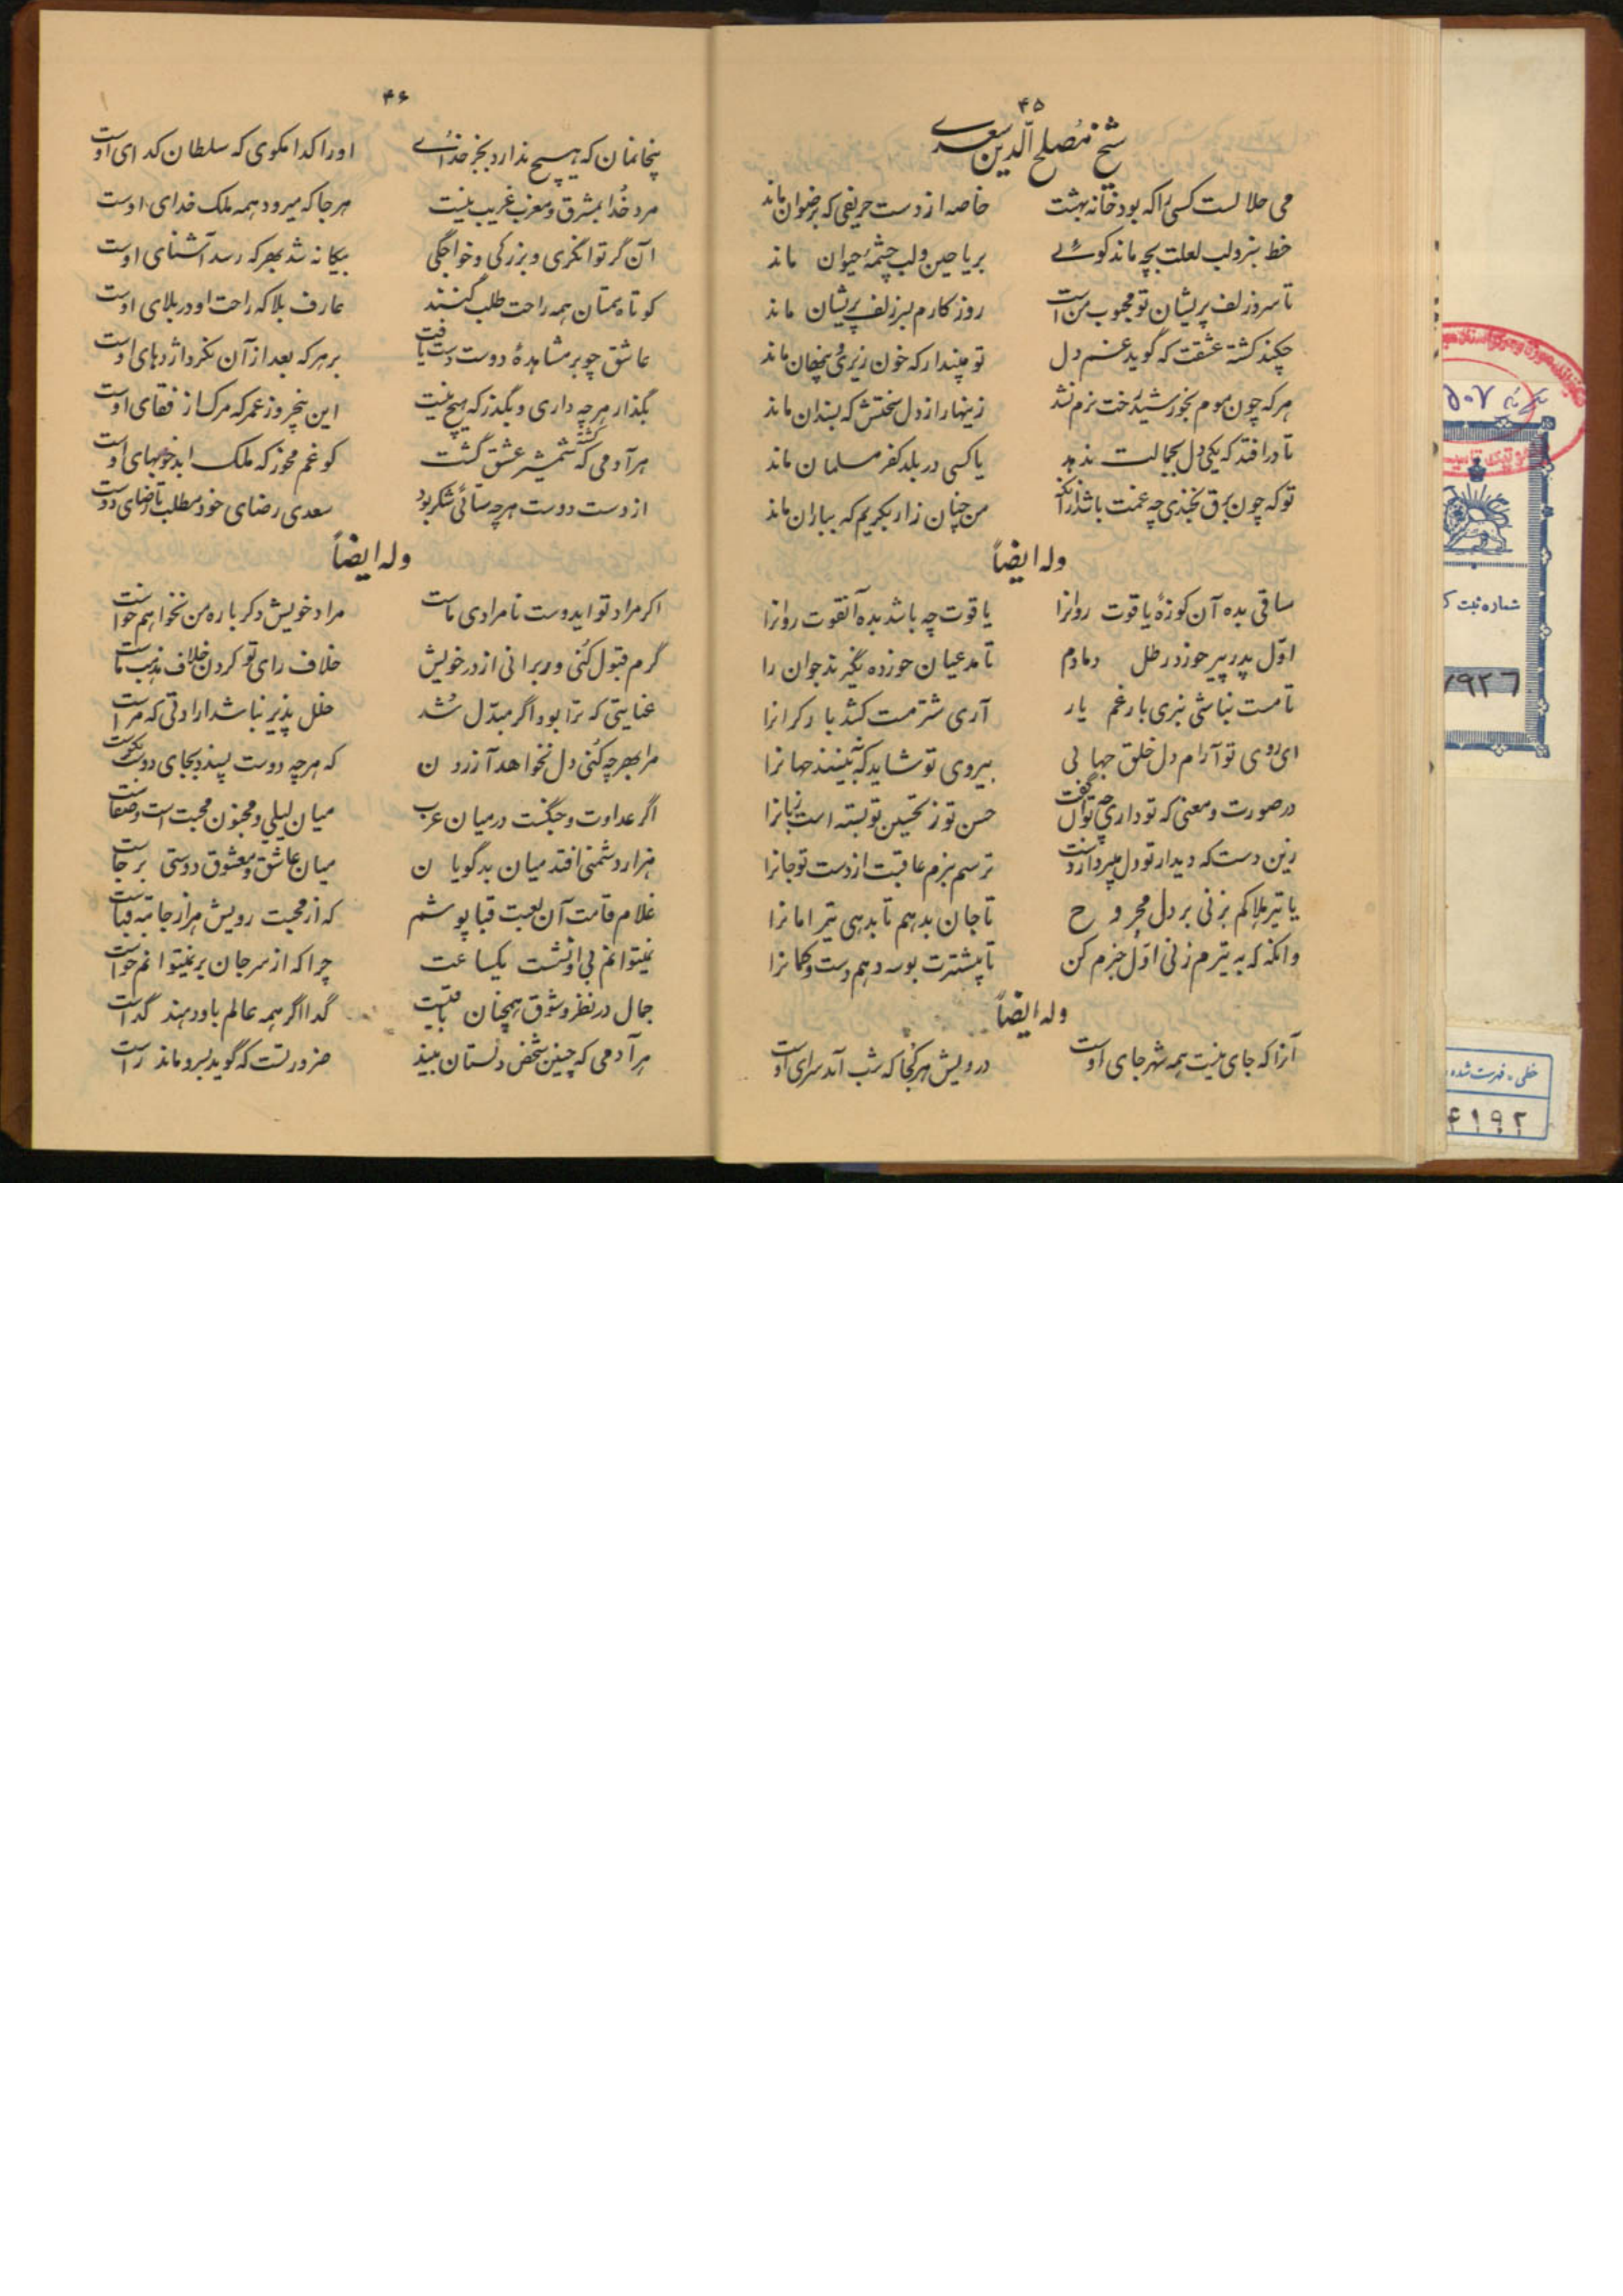 ۴۵
شیخ مصلح الدین سعدی
می حلالست کسی را که بود خانه بهشت خاصه از دست حریفی که برضوان ماند
خط سبز و لب لعلت بچه ماند کوئی بریاحین و لب چشمهٔ حیوان ماند
تا سر زلف پریشان تو محبوب من است روزکارم بسر زلف پریشان ماند
چکند کشته عشقت که گوید غم دل تو مپندار که خون ریزی و پنهان ماند
هر که چون موم بخورشید رخت نرم نشد زینهار از دل سختش که بسندان ماند
نادر افتد که یکی دل بجمالت ندهد یا کسی در بلد کفر مسلمان ماند
تو که چون برق بخندی چه غمت باشد از آنکه من چنان زار بکریم که بباران ماند
وله ایضاً
ساقی بده آن کوزهٔ یاقوت روانرا یاقوت چه باشد بده آنقوت روانرا
اول پدر پیر خورد رطل دمادم تا مدعیان خورده نگیرند جوان را
تا مست نباشی نبری بار غم یار آری شتر مست کشد بار کرانرا
ای روی تو آرام دل خلق جهانی بیروی تو شاید که نبینند جهانرا
در صورت و معنی که تو داری چه توان گفت حسن تو ز تحسین تو بسته است زبانرا
زین دست که دیدار تو دل میبرد از دست ترسم نبرم عاقبت از دست تو جانرا
یا تیر هلاکم بزنی بر دل مجروح تا جان بدهم تا بدهی تیر امانرا
وانکه که به تیرم زنی اول خبرم کن تا پیشترت بوسه دهم دست و کمانرا
وله ایضاً
آنرا که جای نیست همه شهر جای اوست درویش هر کجا که شب آمد سرای اوست
۴۶
بیخانمان که هیچ ندارد بجز خدای او را کدا مکوی که سلطان کدای اوست
مرد خدا بمشرق و مغرب غریب نیست هر جا که میرود همه ملک خدای اوست
آن گر توانگری و بزرکی و خواجگی بیکانه شد بهر که رسد آشنای اوست
کوتاه همتان همه راحت طلب کنند عارف بلا که راحت او در بلای اوست
عاشق چو بر مشاهدهٔ دوست دست یافت بر هر که بعد از آن نکرد اژدهای اوست
بگذار هر چه داری و بگذر که هیچ نیست این پنچروز عمر که مرک از قفای اوست
هر آدمی که کشته شمشیر عشق گشت کو غم مخور که ملک ابد خونبهای اوست
از دست دوست هر چه ستائی شکر بود سعدی رضای خود مطلب تا رضای دوست
وله ایضاً
اکر مراد تو ایدوست نامرادی ماست مراد خویش دکر باره من نخواهم خواست
گرم قبول کنی ور برانی از در خویش خلاف رای تو کردن خلاف مذهب ماست
عنایتی که ترا بود اگر مبدل شد خلل پذیر نباشد ارادتی که مراست
مرا بهر چه کنی دل نخواهد آزردن که هر چه دوست پسندد بجای دوست نکوست
اگر عداوت و جنگست در میان عرب میان لیلی و مجنون محبت است و صفاست
هزار دشمنی افتد میان بدگویان میان عاشق و معشوق دوستی برجاست
غلام قامت آن لعبت قبا پوشم که از محبت رویش هزار جامه قباست
نمیتوانم بی او نشست یکساعت چرا که از سر جان بر نمیتوانم خواست
جمال در نظر و شوق همچنان باقیست گدا اگر همه عالم باو دهند گداست
هر آدمی که چنین شخص دلستان بیند ضرورتست که گوید بسرو ماند راست
شماره ثبت ک
خطی - فهرست شده
۴۱۹۲